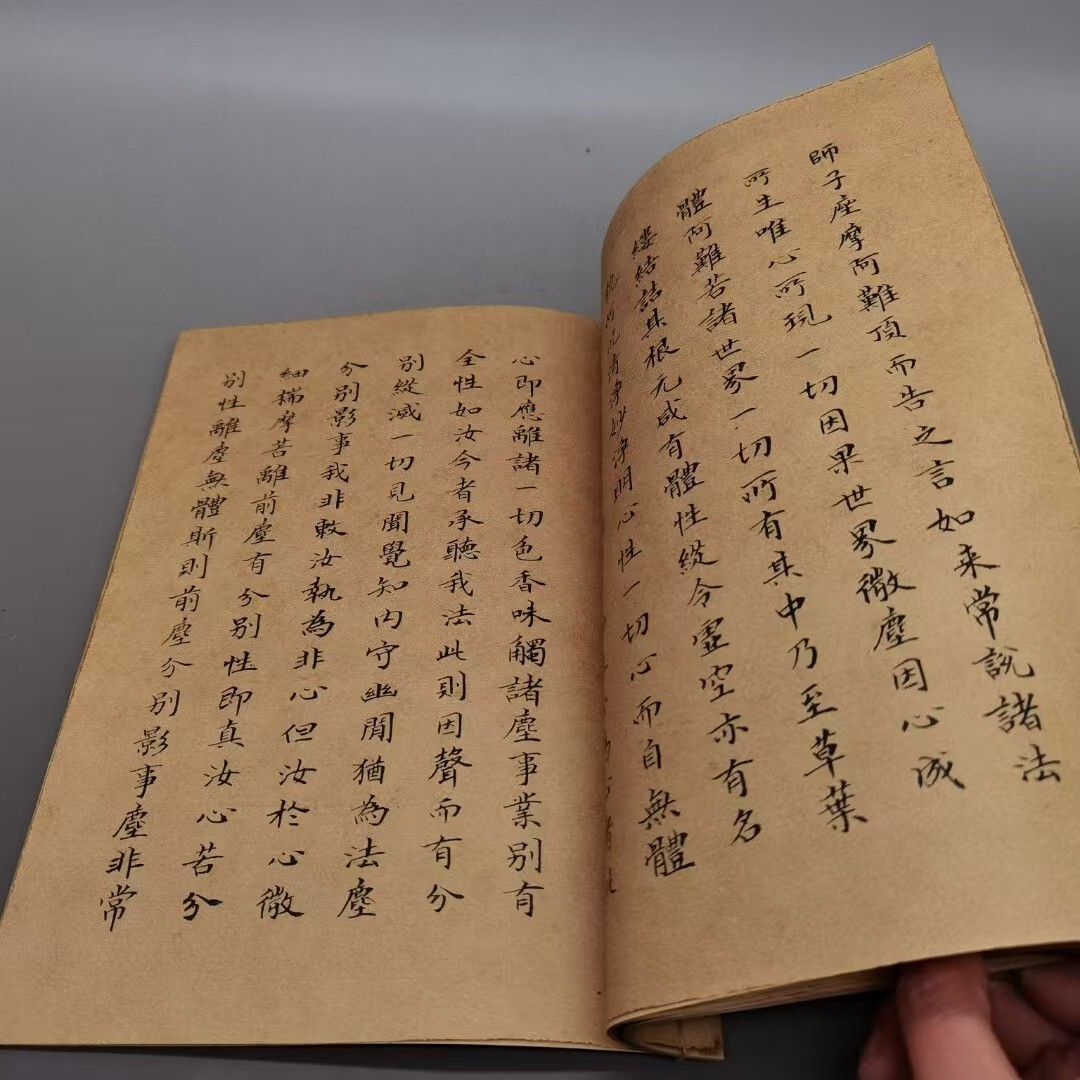 師子座摩阿難頂而告之言如来常說諸法
所生唯心所現一切因果世界微塵因心成
體阿難若諸世界一切所有其中乃至草葉
縷結詰其根元咸有體性縱令虛空亦有名
貌何况清净妙净明心性一切心而自無體
心即應離諸一切色香味觸諸塵事業别有
全性如汝今者承聽我法此則因聲而有分
别縱滅一切見聞覺知内守幽閒猶為法塵
分别影事我非敕汝執為非心但汝於心微
細揣摩若離前塵有分别性即真汝心若分
别性離塵無體斯則前塵分别影事塵非常